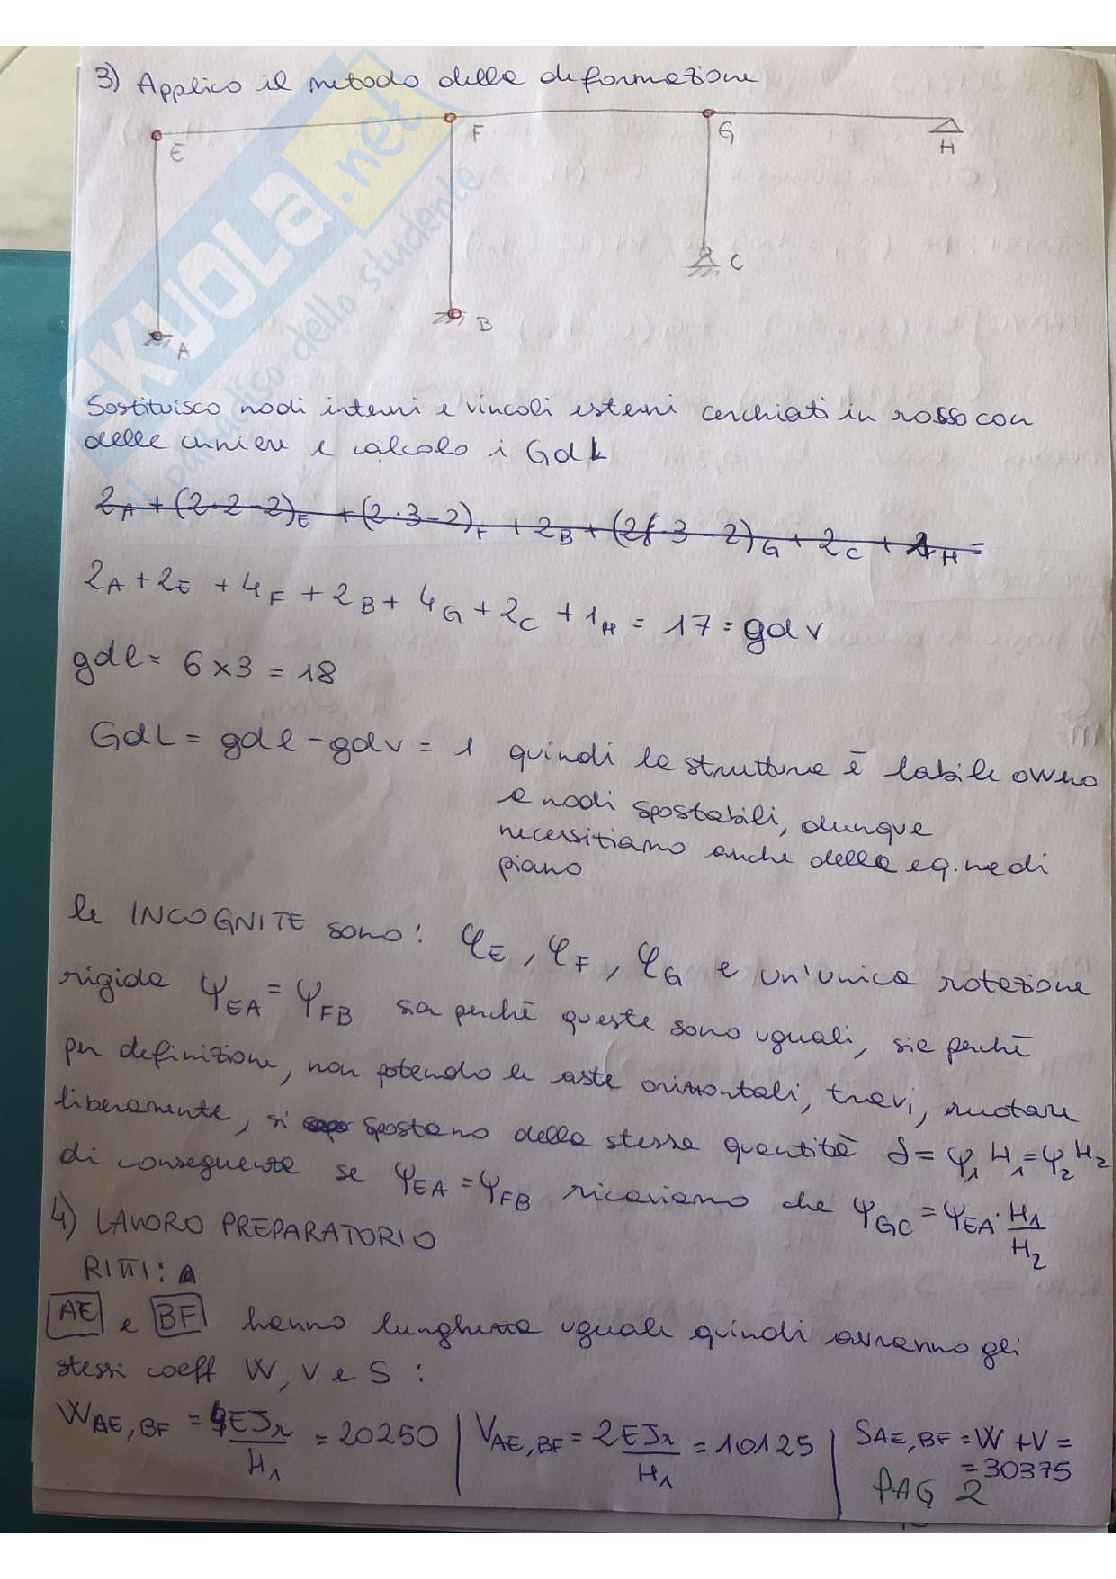 3) Applico il metodo delle deformazione
E
F
G
H
C
B
A
SKUOLA.net
dello studente
Sostituisco nodi interni e vincoli esterni cerchiati in rosso con
delle cerniere e calcolo i GdL
2A + (2·2-2)E + (2·3-2)F + 2B + (2·3-2)G + 2C + 1H =
2A + 2E + 4F + 2B + 4G + 2C + 1H = 17 = gdv
gdl = 6x3 = 18
GdL = gdl - gdv = 1 quindi la struttura è labile ovvero
a nodi spostabili, dunque
necessitiamo anche delle eq.ne di
piano
le INCOGNITE sono: φE, φF, φG e un'unica rotazione
rigida ψEA = ψFB sia perchè queste sono uguali, sia perchè
per definizione, non potendo le aste orizzontali, travi, ruotare
liberamente, si spostano della stessa quantità δ = ψ1 H1 = ψ2 H2
di conseguenza se ψEA = ψFB ricaviamo che ψGC = ψEA · H1/H2
4) LAVORO PREPARATORIO
RITTI:
AE e BF hanno lunghezza uguale quindi avranno gli
stessi coeff W, V e S :
WAE,BF = 4EJr/H1 = 20250 | VAE,BF = 2EJr/H1 = 10125 | SAE,BF = W + V =
= 30375
PAG 2